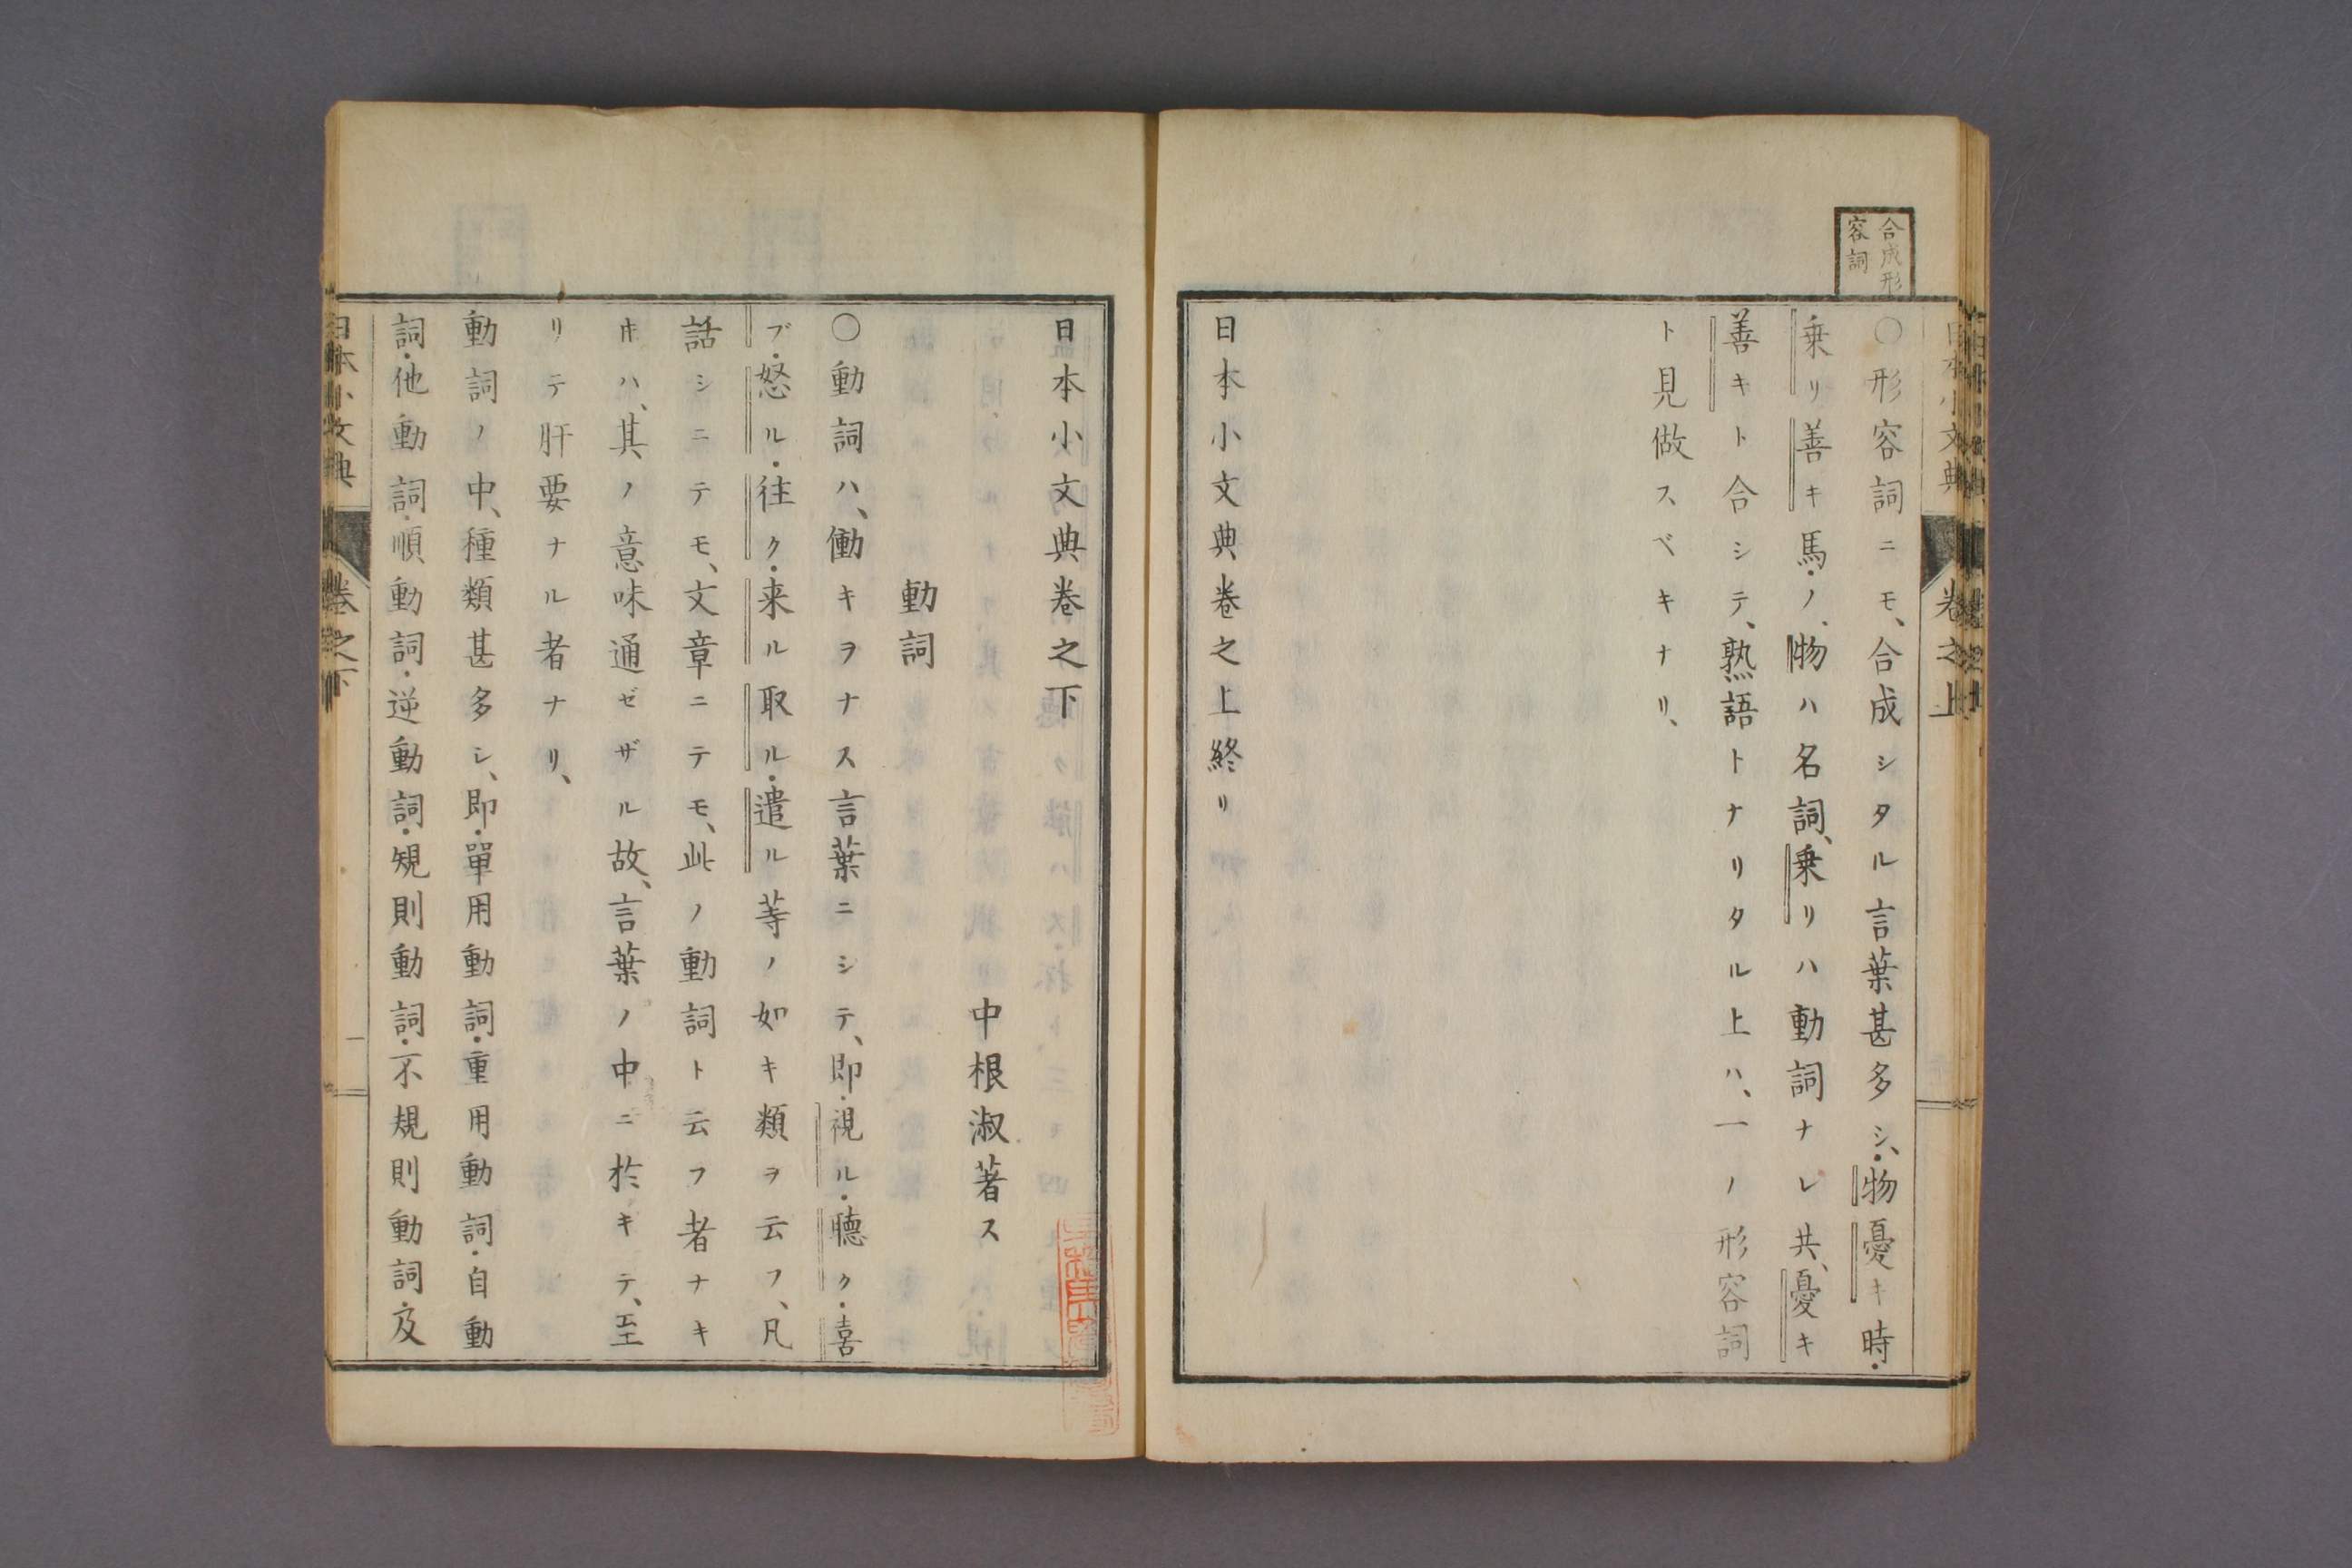 合成形
容詞
日本小文典 卷之上
○形容詞ニモ、合成シタル言葉甚多シ、物憂キ時・
乗リ善キ馬・ノ、物ハ名詞、乗リハ動詞ナレ共、憂キ
善キト合シテ、熟語トナリタル上ハ、一ノ形容詞
ト見做スベキナリ、
日本小文典卷之上終リ
日本小文典卷之下
中根淑著ス
動詞
○動詞ハ、働キヲナス言葉ニシテ、即・視ル・聽ク・喜
ブ・怒ル・往ク・来ル・取ル・遣ル等ノ如キ類ヲ云フ、凡
話シニテモ、文章ニテモ、此ノ動詞ト云フ者ナキ
𪜈ハ、其ノ意味通ゼザル故、言葉ノ中ニ於キテ、至
リテ肝要ナル者ナリ、
動詞ノ中、種類甚多シ、即・單用動詞・重用動詞・自動
詞・他動詞・順動詞・逆動詞・規則動詞・不規則動詞・及
日本小文典 卷之下 一